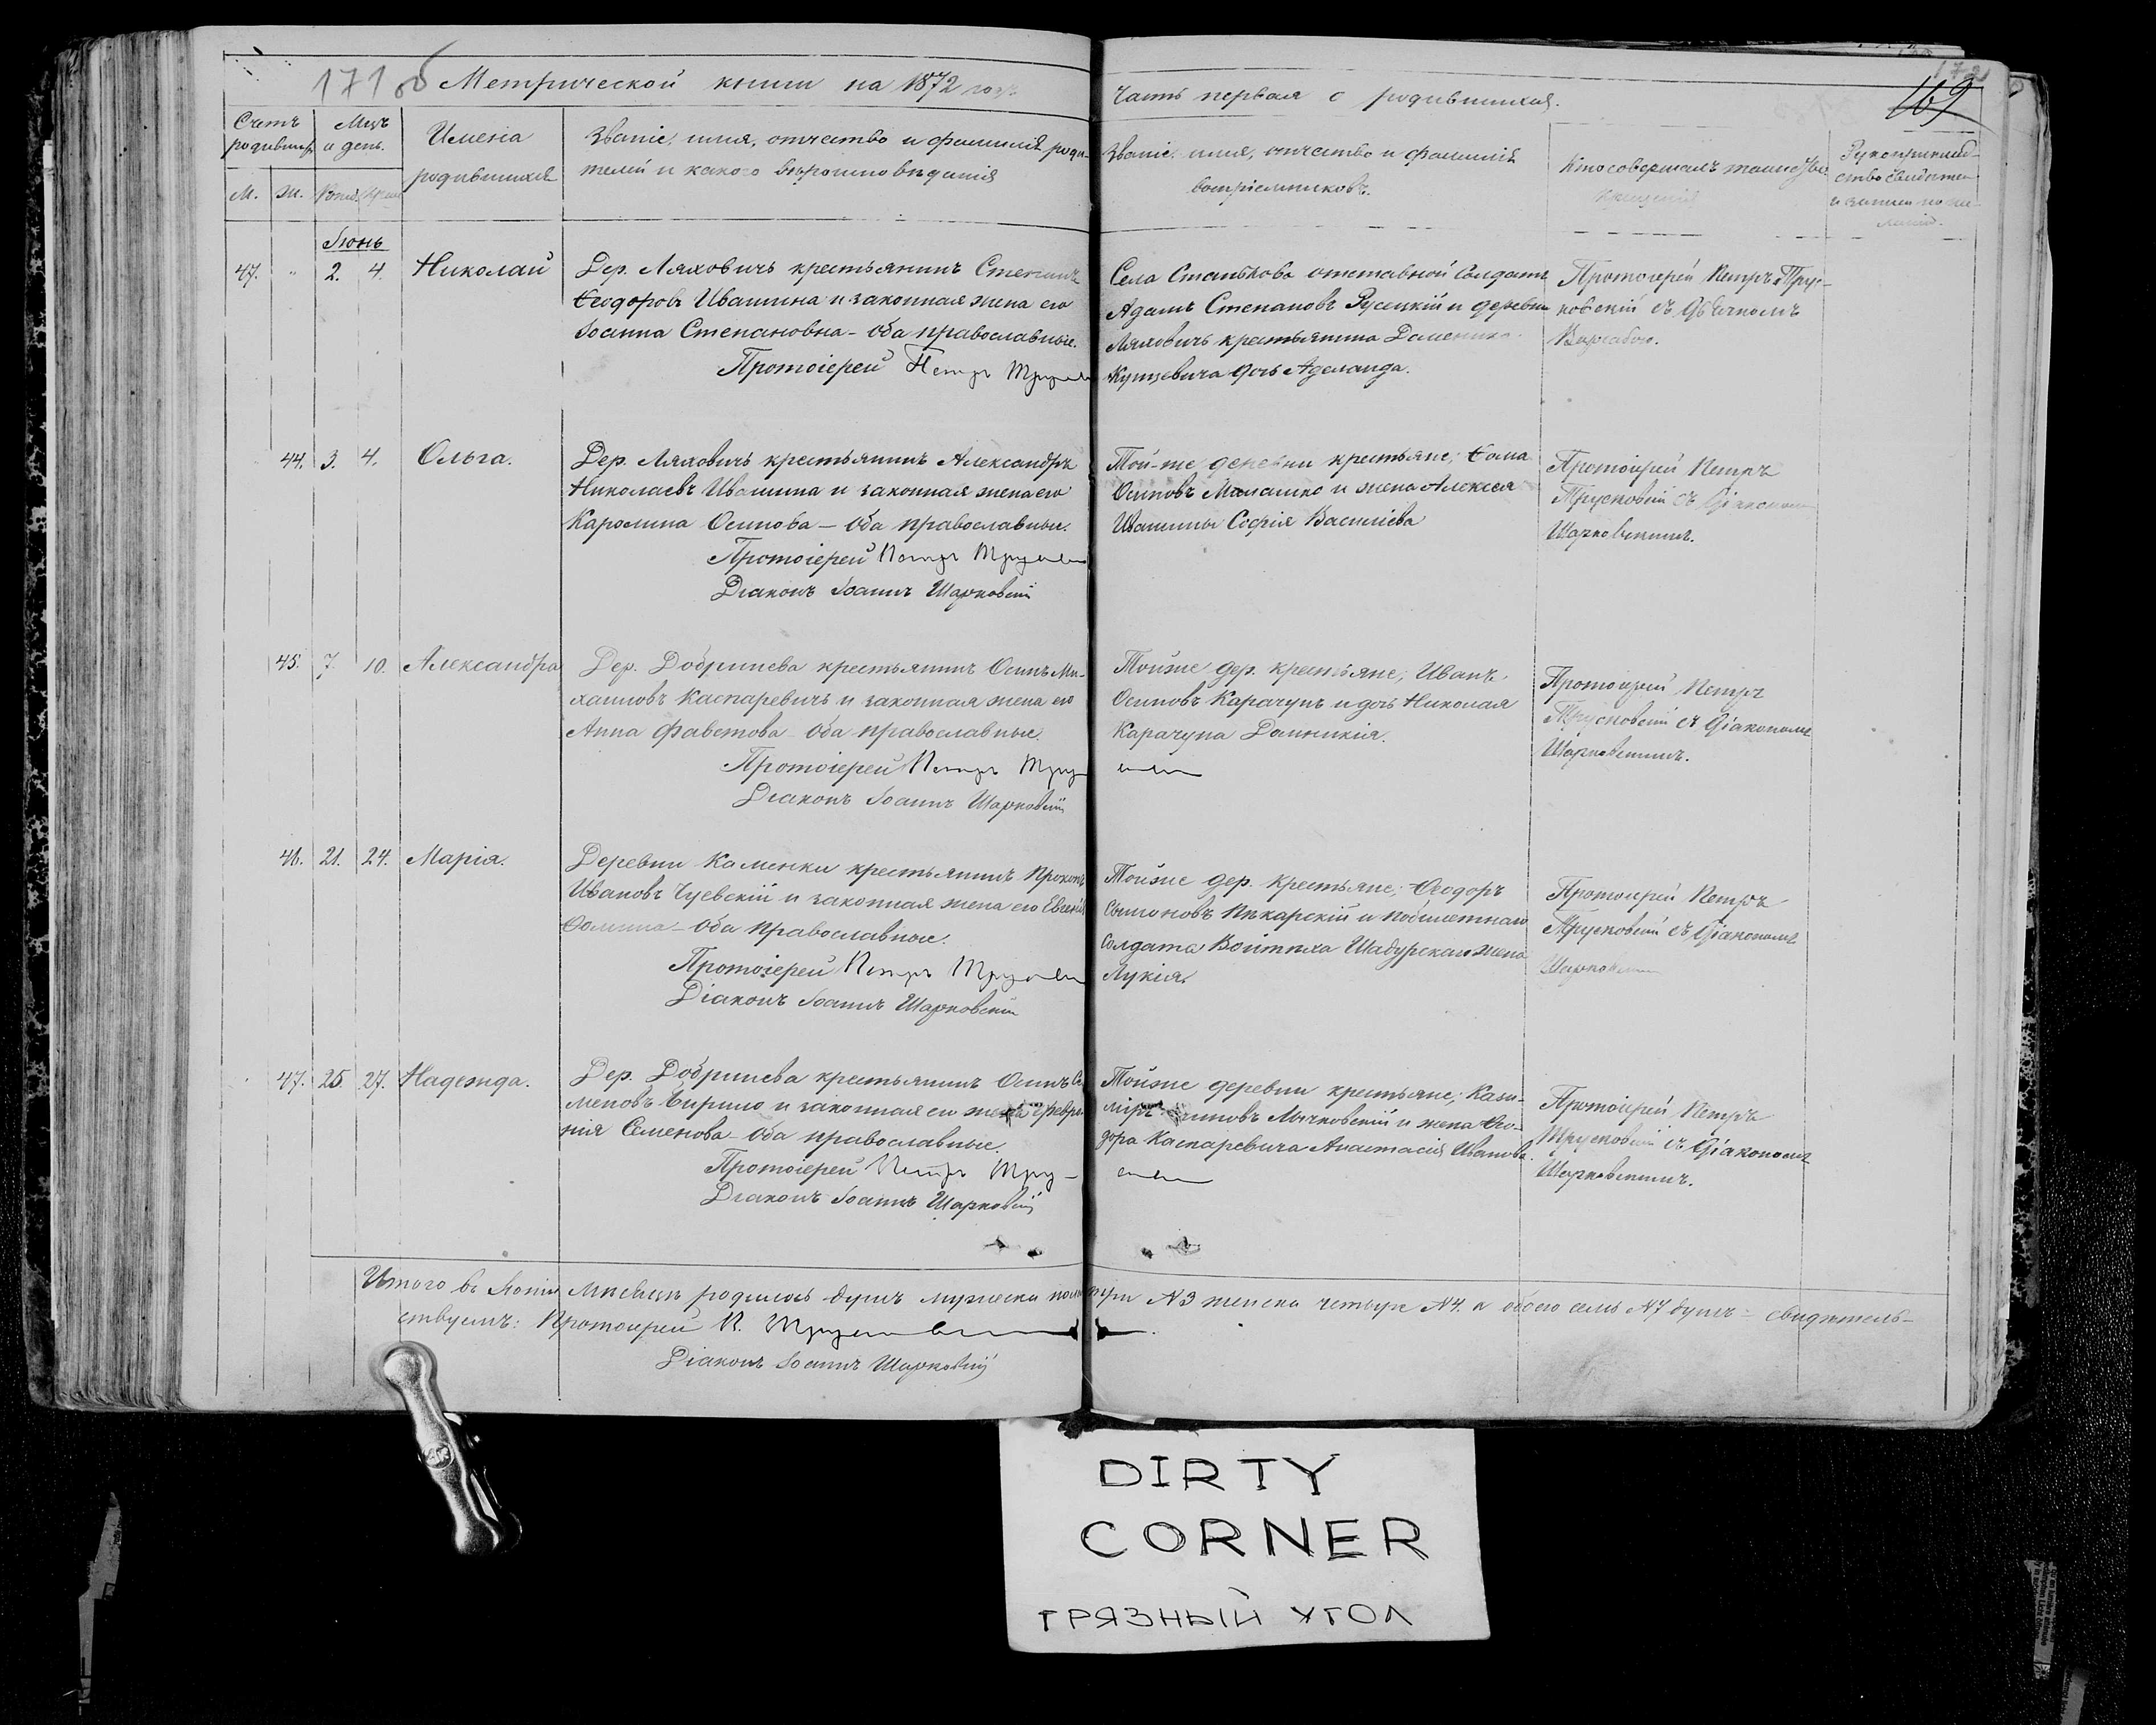 171 об
Метрической книги на 1872 годъ
Часть первая о родившихся.
172
169
Счетъ родившихъ
Мцъ и день.
Имена родившихся
Званіе, имя, отчество и фамилія роди-
телей и какого вѣроисповѣданія
Званіе, имя, отчество и фамилія
воспріемниковъ.
Кто совершалъ таинство
крещенія
Рукоприклад-
ство свидѣтел
и записи по же-
ланію.
М.
Ж.
Рожд.
Крещ
Іюнь
47. " 2. 4. Николай
Дер. Ляховичъ крестьянинъ Степанъ
Ѳеодоровъ Ивашина и законная жена его
Іоанна Степановна - оба православные.
Протоіерей Петръ
Села Станькова отставной солдатъ
Адамъ Степановъ Русецкій и деревни
Ляховичъ крестьянина Доменика
Купцевича дочь Аделаида.
Протоіерей Петръ Трус-
ковскій съ Дьячкомъ
44. 3. 4. Ольга.
Дер. Ляховичъ крестьянинъ Александръ
Николаевъ Ивашина и законная жена его
Каролина Осипова - оба православные.
Протоіерей Петръ
Діаконъ Іоаннъ Шарковскій
Той-же деревни крестьяне; Ѳома
Осиповъ Малашко и жена Алексея
Ивашины Софія Василіева
Протоіерей Петръ
Трусковскій съ Діакономъ
Шарковскимъ.
45. 7. 10. Александра
Дер. Добринева крестьянинъ Осипъ Ми-
хаиловъ Каспаревичъ и законная жена его
Анна Фавстова - оба православные.
Протоіерей Петръ
Діаконъ Іоаннъ Шарковскій
Тойже дер. крестьяне; Иванъ
Осиповъ Карачунъ и дочь Николая
Карачуна Домникія.
Протоіерей Петръ
Трусковскій съ Діакономъ
Шарковскимъ.
46. 21. 24. Марія.
Деревни Каменки крестьянинъ Прокопъ
Ивановъ Чуевскій и законная жена его Евгенія
Ѳомина - оба православные.
Протоіерей Петръ
Діаконъ Іоаннъ Шарковскій
Тойже дер. крестьяне; Ѳеодоръ
Сымоновъ Пекарскій и побилетнаго
солдата Войтѣха Шадурскаго жена
Лукія.
Протоіерей Петръ
Трусковскій съ Діакономъ
47. 25. 27. Надежда.
Дер. Добринева крестьянинъ Осипъ Се
меновъ и законная его жена Февро
нія Семенова - оба православные.
Протоіерей Петръ
Діаконъ Іоаннъ Шарковскій
Тойже деревни крестьяне; Кази-
міръ Мычковскій и жена Ѳео-
дора Каспаревича Анастасія Иванова
Протоіерей Петръ
Трусковскій съ Діакономъ
Шарковскимъ.
Итого въ Іюнѣ мѣсяцѣ родилось душъ мужеска пола три №3 женска четыре №4. а обоего семь №7 душъ - свидѣтель-
ствуемъ: Протоіерей П.
Діаконъ Іоаннъ Шарковскій
DIRTY
CORNER
ГРЯЗНЫЙ УГОЛ